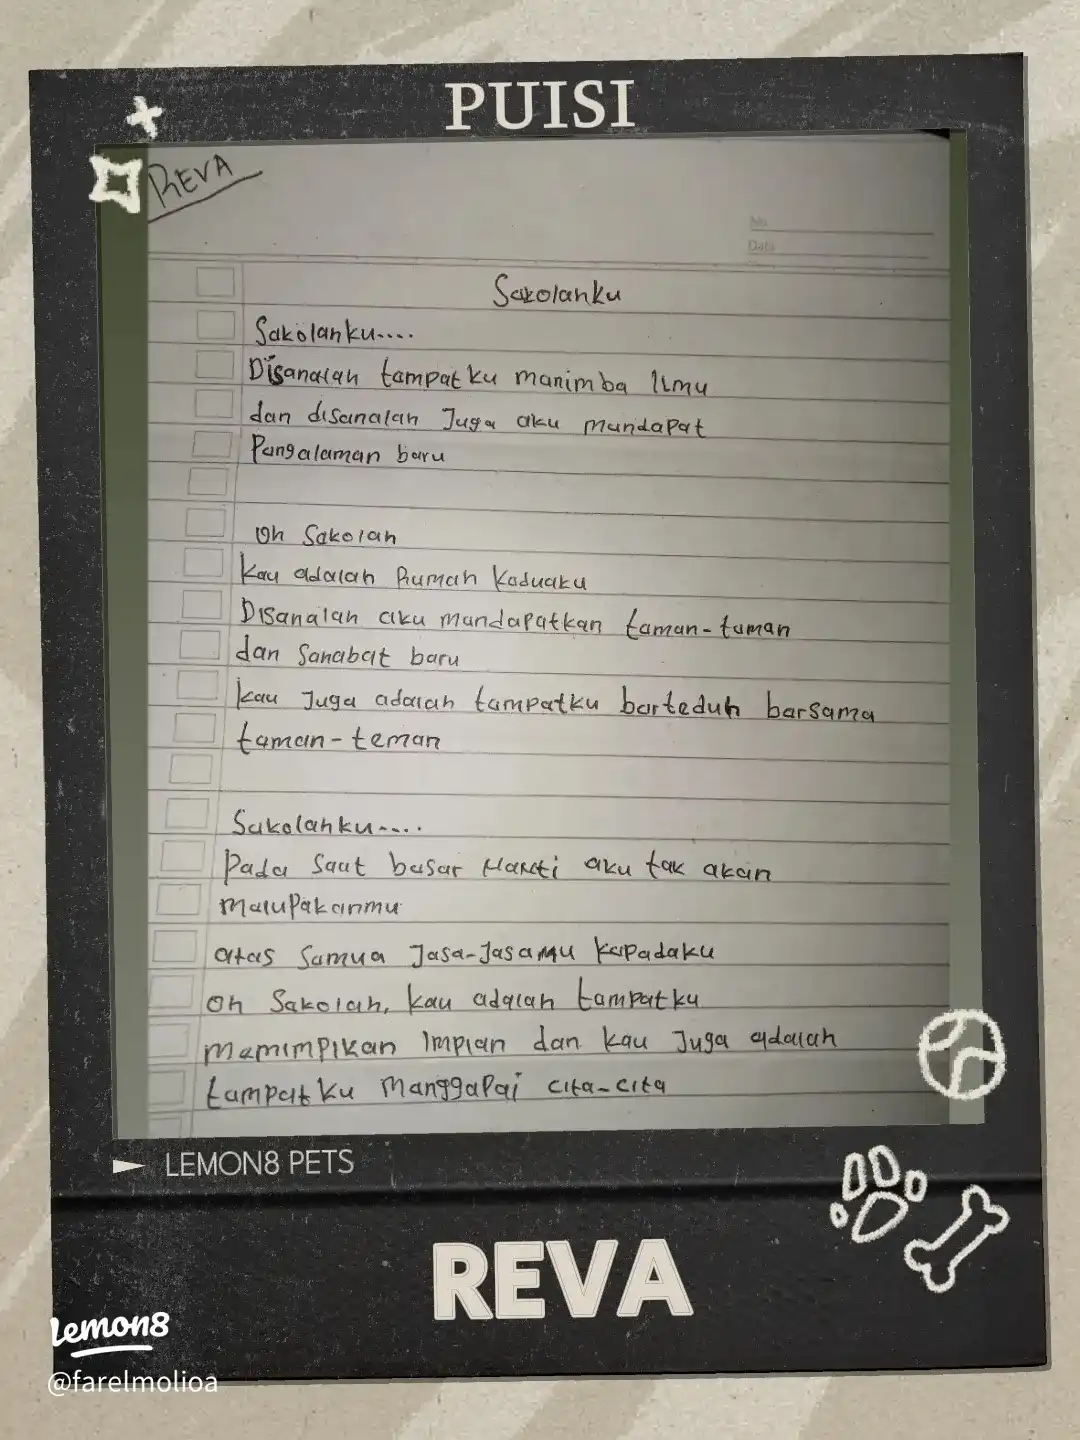 PUISI
REVA
No
Date
Sakolahku
Sakolahku....
Disanalah tampatku manimba Ilmu
dan disanalah Juga aku mandapat
Pangalaman baru
Oh Sakolah
kau adalah Rumah Kaduaku
Disanalah aku mandapatkan taman-taman
dan Sahabat baru
kau Juga adalah tampatku barteduh barsama
taman-teman
Sakolahku....
Pada Saat basar Nanti aku tak akan
Malupakanmu
atas Samua Jasa-Jasamu kapadaku
Oh Sakolah, kau adalah tampatku
Mamimpikan Impian dan kau Juga adalah
tampatku Manggapai cita-cita
LEMON8 PETS
REVA
Lemon8
@farelmolioa